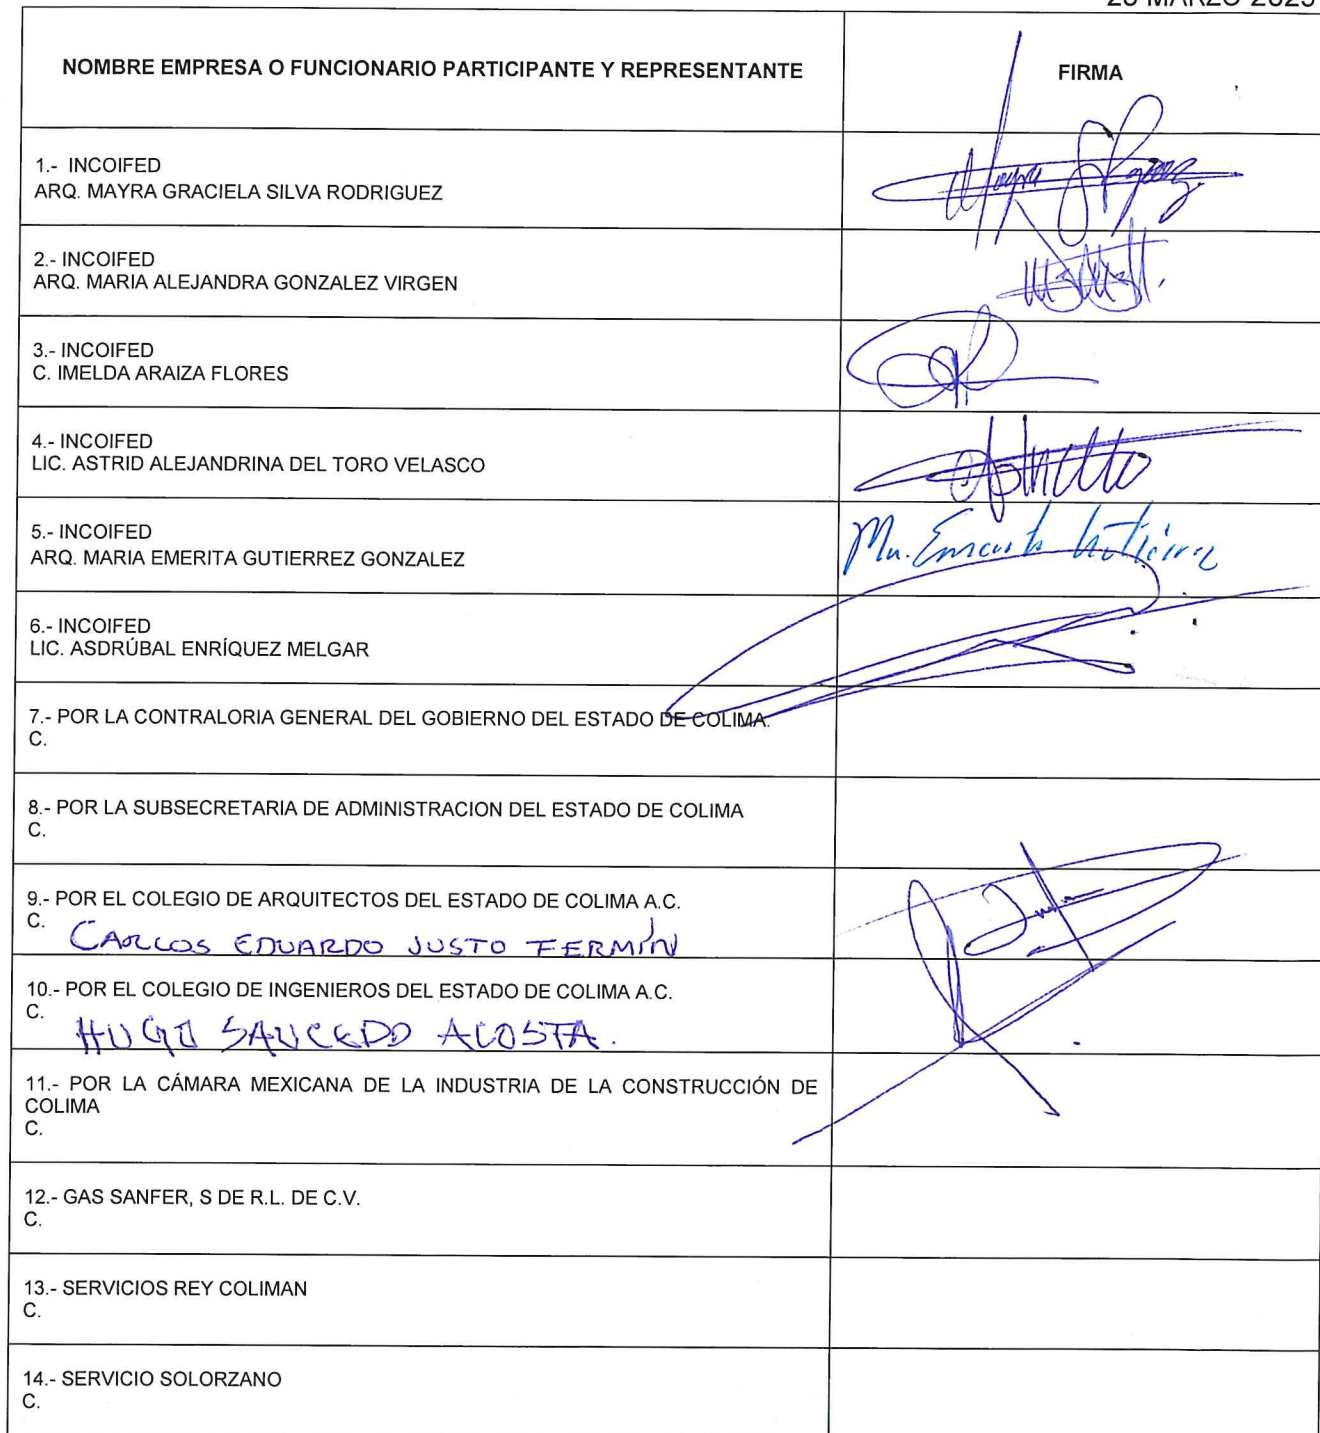 NOMBRE EMPRESA O FUNCIONARIO PARTICIPANTE Y REPRESENTANTE
FIRMA
1.- INCOIFED
ARQ. MAYRA GRACIELA SILVA RODRIGUEZ
2.- INCOIFED
ARQ. MARIA ALEJANDRA GONZALEZ VIRGEN
3.- INCOIFED
C. IMELDA ARAIZA FLORES
4.- INCOIFED
LIC. ASTRID ALEJANDRINA DEL TORO VELASCO
5.- INCOIFED
ARQ. MARIA EMERITA GUTIERREZ GONZALEZ
6.- INCOIFED
LIC. ASDRÚBAL ENRÍQUEZ MELGAR
7.- POR LA CONTRALORIA GENERAL DEL GOBIERNO DEL ESTADO DE COLIMA.
C.
8.- POR LA SUBSECRETARIA DE ADMINISTRACION DEL ESTADO DE COLIMA
C.
9.- POR EL COLEGIO DE ARQUITECTOS DEL ESTADO DE COLIMA A.C.
C. CARLOS EDUARDO JUSTO FERMÍN
10.- POR EL COLEGIO DE INGENIEROS DEL ESTADO DE COLIMA A.C.
C. HUGO SAUCEDO ACOSTA.
11.- POR LA CÁMARA MEXICANA DE LA INDUSTRIA DE LA CONSTRUCCIÓN DE
COLIMA
C.
12.- GAS SANFER, S DE R.L. DE C.V.
C.
13.- SERVICIOS REY COLIMAN
C.
14.- SERVICIO SOLORZANO
C.